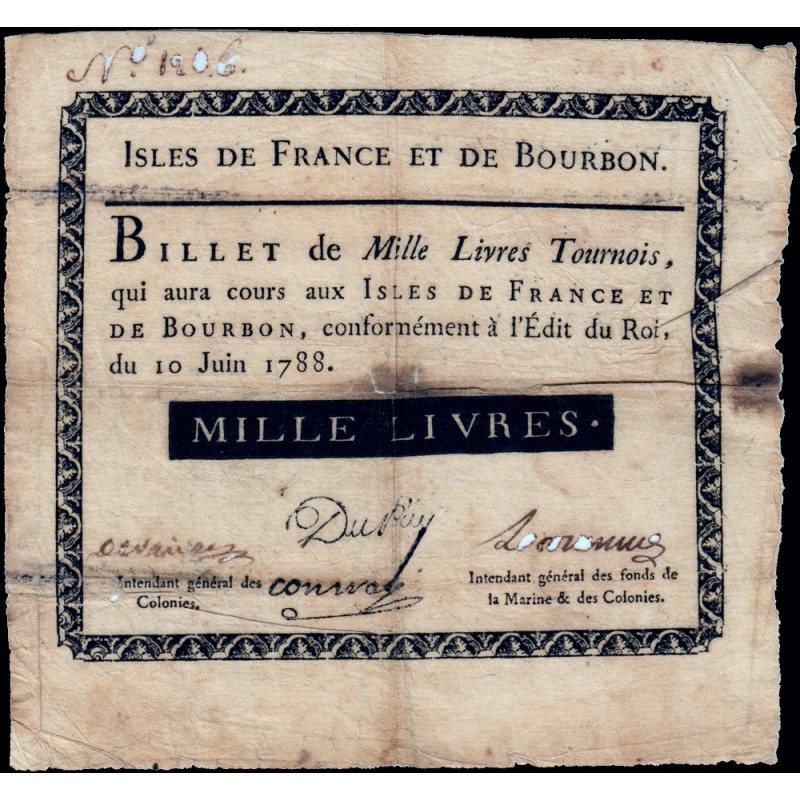 Nº 1206.
ISLES DE FRANCE ET DE BOURBON.
BILLET de Mille Livres Tournois,
qui aura cours aux ISLES DE FRANCE ET
DE BOURBON, conformément à l'Édit du Roi,
du 10 Juin 1788.
MILLE LIVRES.
DuPuy
Conway
Intendant général des
Colonies.
Intendant général des fonds de
la Marine & des Colonies.